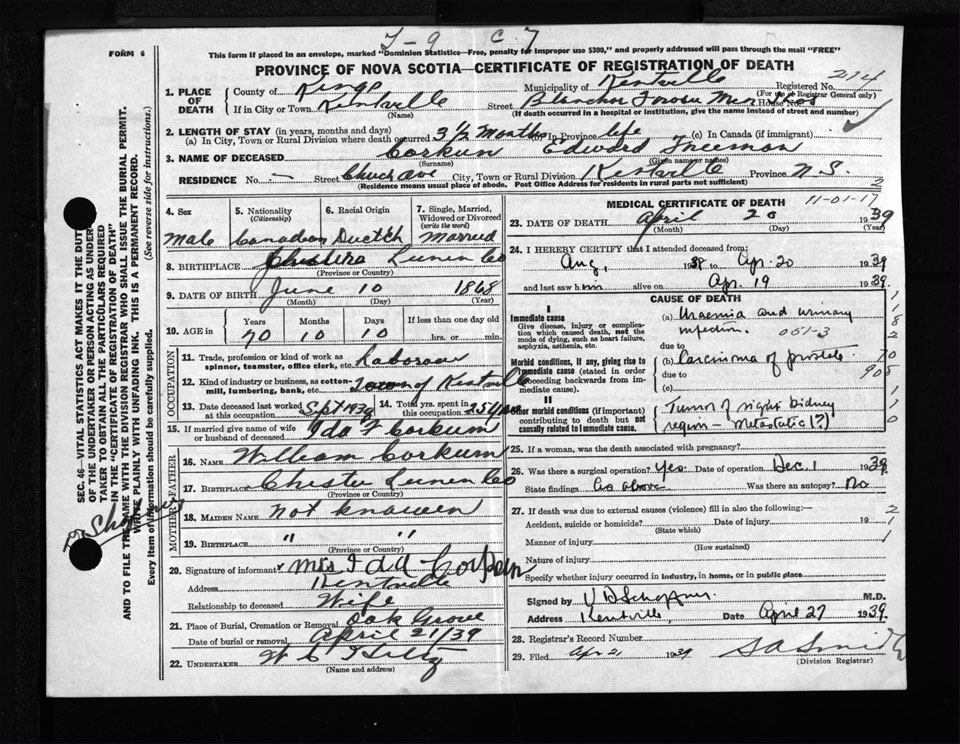 T-9 C.7
FORM 6
This form if placed in an envelope, marked "Dominion Statistics—Free, penalty for improper use $300," and properly addressed will pass through the mail "FREE"
PROVINCE OF NOVA SCOTIA—CERTIFICATE OF REGISTRATION OF DEATH
1. PLACE OF DEATH
County of Kings
Municipality of Kentville
Registered No. 214
(For use of Registrar General only)
If in City or Town Kentville
(Name)
Street Blanchard House No.
(If death occurred in a hospital or institution, give the name instead of street and number)
2. LENGTH OF STAY (in years, months and days)
(a) In City, Town or Rural Division where death occurred 3 1/2 Months (b) In Province life (c) In Canada (if immigrant)
3. NAME OF DECEASED Corkum Edward Freeman
(Surname) (Given names)
RESIDENCE No. — Street Church ave City, Town or Rural Division Kentville Province N.S.
(Residence means usual place of abode. Post Office Address for residents in rural parts not sufficient)
2
4. Sex Male
5. Nationality (Citizenship) Canadian
6. Racial Origin Duetch
7. Single, Married, Widowed or Divorced (write the word) Married
8. BIRTHPLACE Lunen Co
(Province or Country)
9. DATE OF BIRTH June 10 1868
(Month) (Day) (Year)
10. AGE in
Years Months Days If less than one day old
70 10 10 hrs. or min.
OCCUPATION
11. Trade, profession or kind of work as spinner, teamster, office clerk, etc. Laborour
12. Kind of industry or business, as cotton-mill, lumbering, bank, etc. Town of Kentville
13. Date deceased last worked at this occupation Sept 1938
14. Total yrs. spent in this occupation 25 years
15. If married give name of wife or husband of deceased Ida F Corkum
FATHER
16. NAME William Corkum
17. BIRTHPLACE Chester Lunen Co
(Province or Country)
MOTHER
18. MAIDEN NAME not knowen
19. BIRTHPLACE " "
(Province or Country)
20. Signature of informant Mrs Ida Corkum
Address Kentville
Relationship to deceased Wife
21. Place of Burial, Cremation or Removal Oak Grove
Date of burial or removal April 21/39
22. UNDERTAKER W C Hiltz
(Name and address)
MEDICAL CERTIFICATE OF DEATH
11-01-17
23. DATE OF DEATH April 20 1939
(Month) (Day) (Year)
24. I HEREBY CERTIFY that I attended deceased from:
Aug, 1938 to Apr. 20 1939
and last saw him alive on Apr. 19 1939.
CAUSE OF DEATH
I
Immediate cause
Give disease, injury or complication which caused death, not the mode of dying, such as heart failure, asphyxia, asthenia, etc.
(a) Uraemia and urinary
051-3
due to
Morbid conditions, if any, giving rise to immediate cause (stated in order proceeding backwards from immediate cause).
(b) Carcinoma of prostate
due to
(c)
II
Other morbid conditions (if important) contributing to death but not causally related to immediate cause.
Tumor of right kidney
region — Metastatic (?)
25. If a woman, was the death associated with pregnancy?
26. Was there a surgical operation? Yes. Date of operation Dec. 1 1938
State findings As above Was there an autopsy? No
27. If death was due to external causes (violence) fill in also the following:—
Accident, suicide or homicide? Date of injury 19
(State which)
Manner of injury
(How sustained)
Nature of injury
Specify whether injury occurred in industry, in home, or in public place
Signed by M.D.
Address Kentville, Date April 27 1939.
28. Registrar's Record Number
29. Filed Apr 21 1939
(Division Registrar)
SEC. 46—VITAL STATISTICS ACT MAKES IT THE DUTY
OF THE UNDERTAKER OR PERSON ACTING AS UNDERTAKER TO OBTAIN ALL THE PARTICULARS REQUIRED
IN THE "CERTIFICATE OF REGISTRATION OF DEATH"
AND TO FILE THE SAME WITH THE DIVISION REGISTRAR WHO SHALL ISSUE THE BURIAL PERMIT.
WRITE PLAINLY WITH UNFADING INK. THIS IS A PERMANENT RECORD.
Every item of information should be carefully supplied. (See reverse side for instructions.)